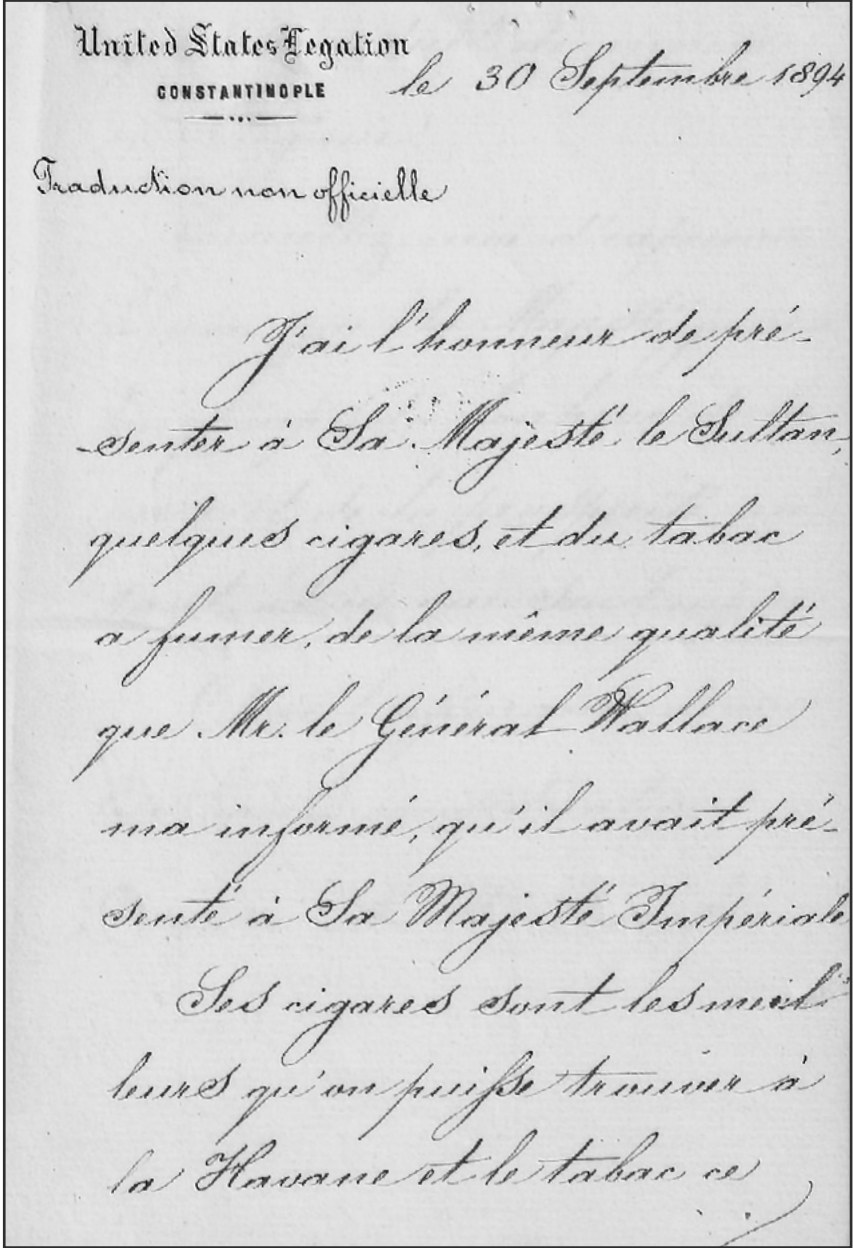 United States Legation
CONSTANTINOPLE
le 30 Septembre 1894
Traduction non officielle
J'ai l'honneur de pré-
-senter à Sa Majesté le Sultan,
quelques cigares, et du tabac
a fumer, de la même qualité
que Mr. le Général Wallace
ma informé, qu'il avait pré-
senté à Sa Majesté Impériale
Les cigares sont les meil-
leurs qu'on puisse trouver à
la Havane et le tabac ce